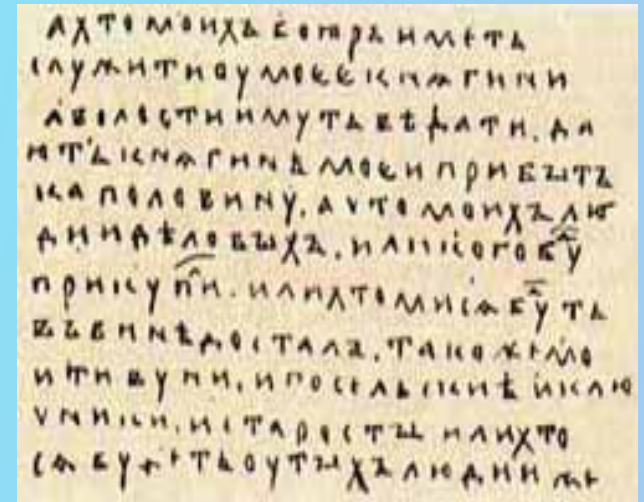 а хто моихъ бояръ иметь
служити оу моее кнѧгини
а волости имуть вѣдати. да
ють кнѧгинѣ моеи прибытъ
ка половину. а что моихъ лю
дии дѣловыхъ. или кого буⷣ
прикупиⷧ. или хто ми сѧ буⷣть
въ винѣ досталъ. тако же мо
и тивуни. и посельскиѣ и клю
чники. и старосты или хто
сѧ будеть оу тыхъ людии же